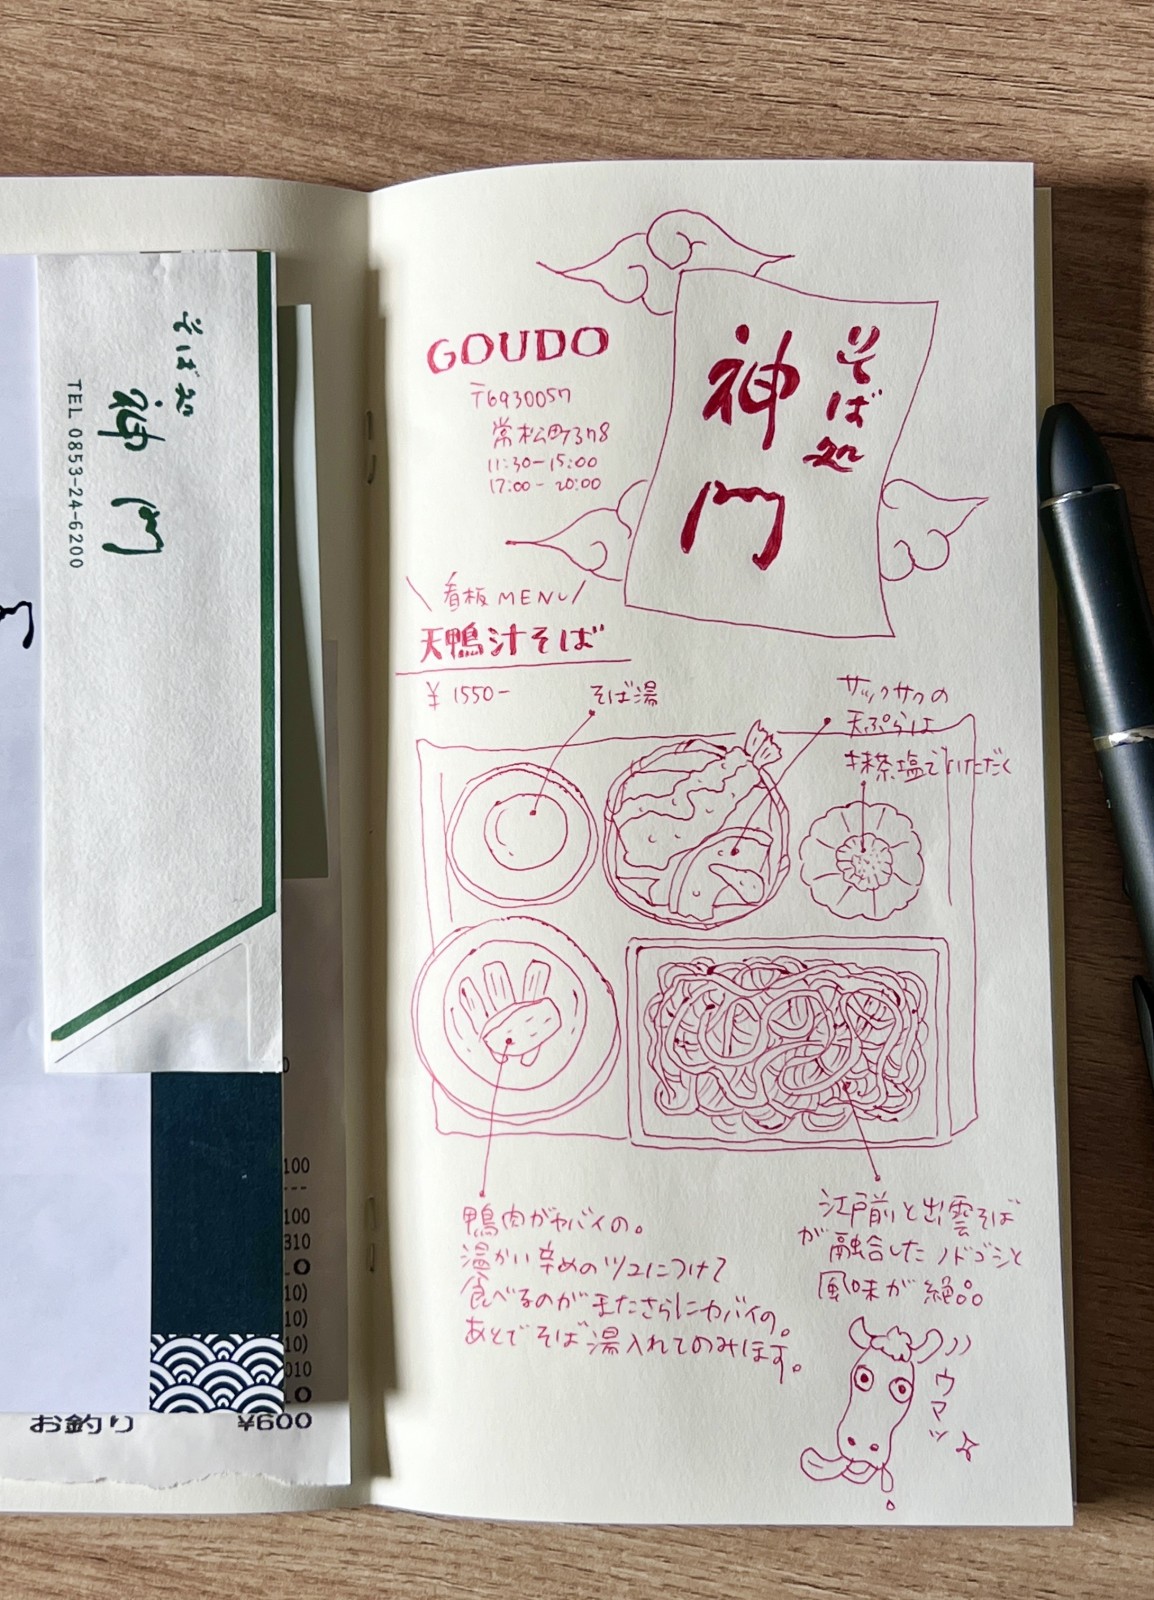 そば処
神門
TEL 0853-24-6200
100
---
100
310
10)
10)
10)
010
お釣り ¥600
そば処
神門
GOUDO
〒6930057
常松町378
11:30-15:00
17:00-20:00
看板MENU
天鴨汁そば
¥1550-
そば湯
サックサクの
天ぷらは
抹茶塩でいただく
鴨肉がヤバイの。
温かい辛めのツユにつけて
食べるのがまたさらにヤバイの。
あとでそば湯入れてのみほす。
江戸前と出雲そば
が融合したノドゴシと
風味が絶品
ウマッ